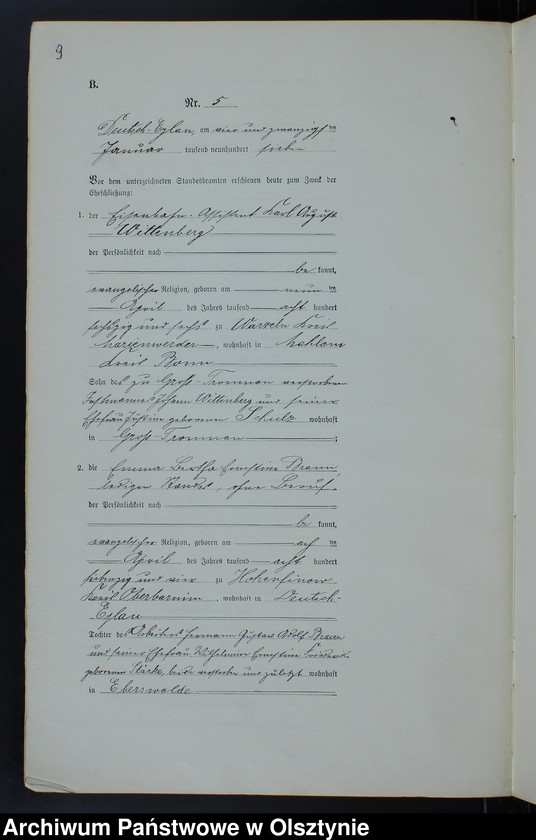 9
B.
Nr. 5
Deutsch-Eylau, am vier und zwanzigsten
Januar tausend neunhundert sieben
Vor dem unterzeichneten Standesbeamten erschienen heute zum Zweck der
Eheschließung:
1. der Eisenbahn-Assistent Karl August
Wittenberg
der Persönlichkeit nach
be kannt,
evangelischer Religion, geboren am neun ten
April des Jahres tausend acht hundert
sechszig und sechs zu Warzeln Kreis
Marienwerder, wohnhaft in Mehlem
Kreis Bonn
Sohn des zu Groß-Tromnau verstorbenen
Johann Wittenberg und seiner
Ehefrau Justine geborenen Schulz wohnhaft
in Groß-Tromnau;
2. die Emma Bertha Ernstine
ledigen Standes, ohne Beruf
der Persönlichkeit nach
be kannt,
evangelischer Religion, geboren am ach ten
April des Jahres tausend acht hundert
siebenzig und vier zu Hohenfinow
Kreis Oberbarnim, wohnhaft in Deutsch-
Eylau
Tochter des Arbeiters Hermann Gustav Adolf
und seiner Ehefrau Wilhelmine Ernstine Friederike
geborenen Stärke, beide verstorben und zuletzt wohnhaft
in Eberswalde
Archiwum Państwowe w Olsztynie